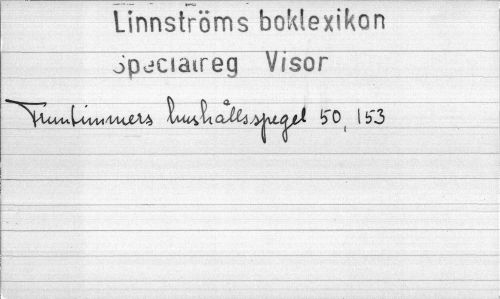 Linnströms boklexikon
Specialreg Visor
Fruntimmers hushållsspegel 50, 153